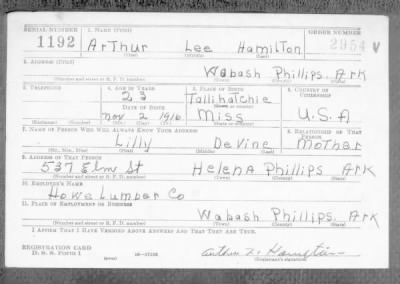 SERIAL NUMBER 1. NAME (Print) ORDER NUMBER
1192 ArThur Lee HamilTon 2954 V
(First) (Middle) (Last)
2. ADDRESS (Print)
Wabash Phillips. Ark
(Number and street or R. F. D. number) (Town) (County) (State)
3. TELEPHONE 4. AGE IN YEARS 5. PLACE OF BIRTH 6. COUNTRY OF CITIZENSHIP
23 Tallihatchie
DATE OF BIRTH (Town or county)
Nov 2 1916 Miss U.S.A
(Mo.) (Day) (Yr.) (State or country)
7. NAME OF PERSON WHO WILL ALWAYS KNOW YOUR ADDRESS 8. RELATIONSHIP OF THAT PERSON
Lilly Devine Mother
(Mr., Mrs., Miss) (First) (Middle) (Last)
9. ADDRESS OF THAT PERSON
537 Elm St Helena Phillips Ark
(Number and street or R. F. D. number) (Town) (County) (State)
10. EMPLOYER'S NAME
Howe Lumber Co
11. PLACE OF EMPLOYMENT OR BUSINESS
Wabash Phillips. Ark
(Number and street or R. F. D. number) (Town) (County) (State)
I AFFIRM THAT I HAVE VERIFIED ABOVE ANSWERS AND THAT THEY ARE TRUE.
REGISTRATION CARD
D. S. S. FORM 1 (over) 16-17105 Arthur L. Hamilton
(Registrant's signature)